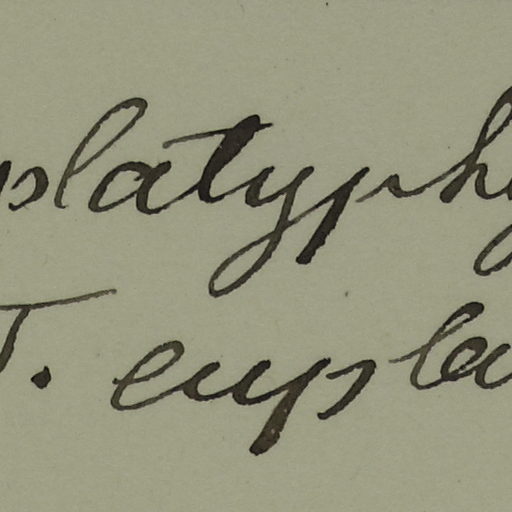 platyphy
T. eupla